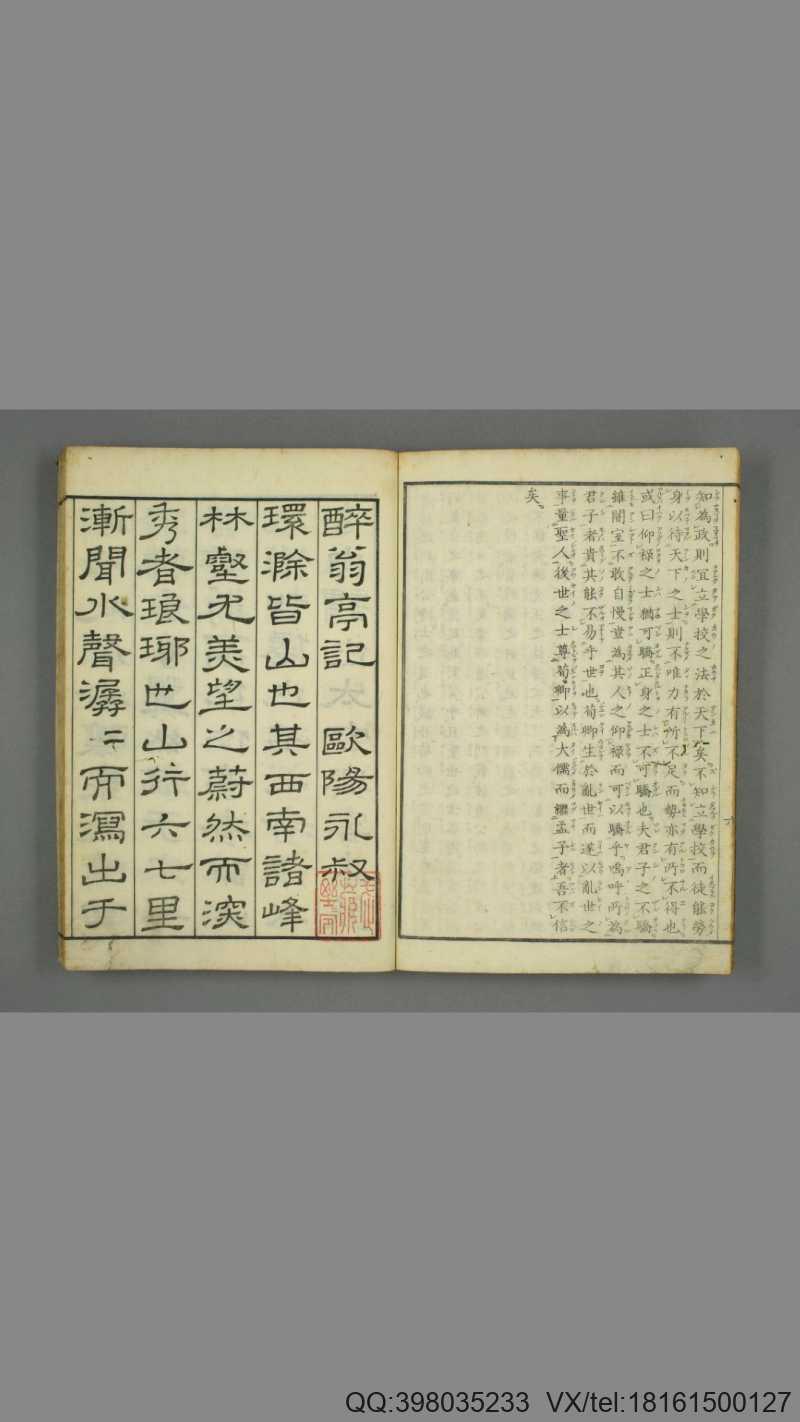 知為政則宜立學挍之法於天下矣不知立學挍而徒能勞
身以待天下之士則不唯力有所不足而勢亦有所不得也
或曰仰祿之士猶可驕正身之士不可驕也夫君子之不驕
雖闇室不敢自慢豈為其人之仰祿而可以驕乎嗚呼所為
君子者貴其能不易乎世也荀卿生於亂世而遂以亂世之
事量聖人後世之士尊荀卿以為大儒而繼孟子者吾不信
矣
醉翁亭記 歐陽永叔
環滁皆山也其西南諸峰
林壑尤美望之蔚然而深
秀者琅琊也山行六七里
漸聞水聲潺二而瀉出于
QQ:398035233 VX/tel:18161500127